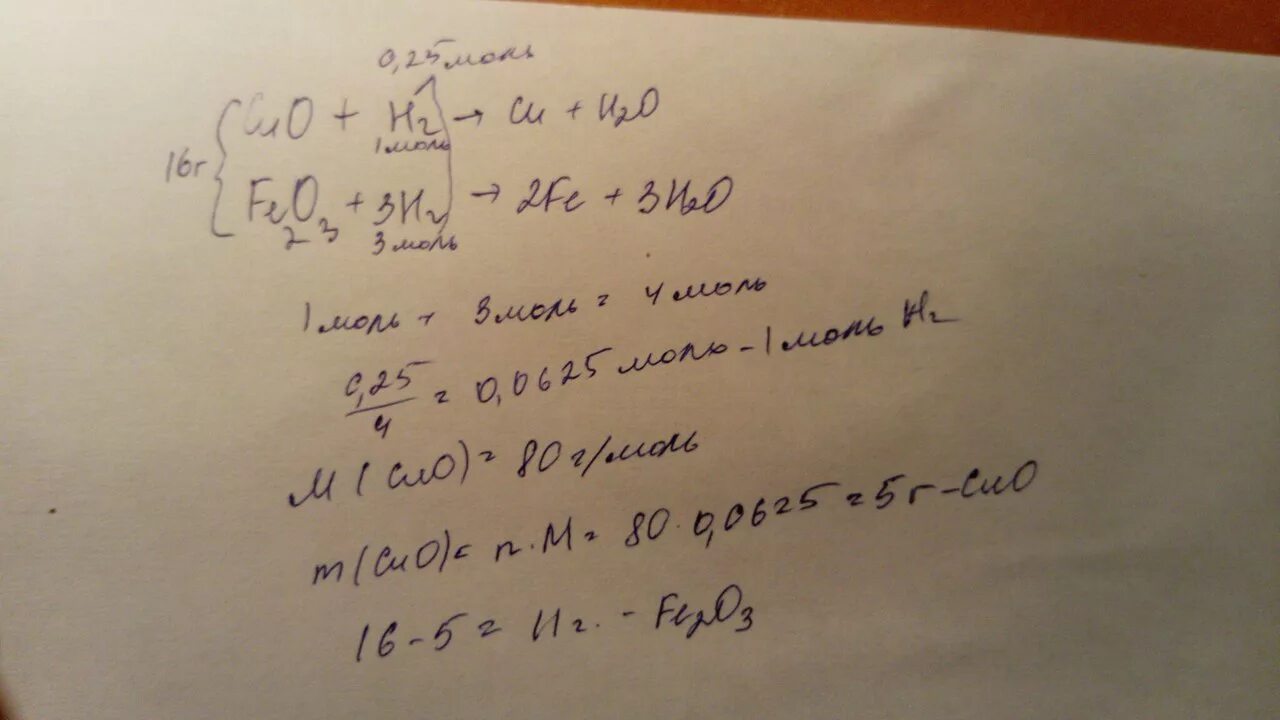 0,25 моль
CuO + H2 → Cu + H2O
1 моль
16г
Fe2O3 + 3H2 → 2Fe + 3H2O
3 моль
1 моль + 3 моль = 4 моль
0,25/4 = 0,0625 моль - 1 моль H2
M(CuO) = 80 г/моль
m(CuO) = n·M = 80·0,0625 = 5 г - CuO
16 - 5 = 11 г. - Fe2O3